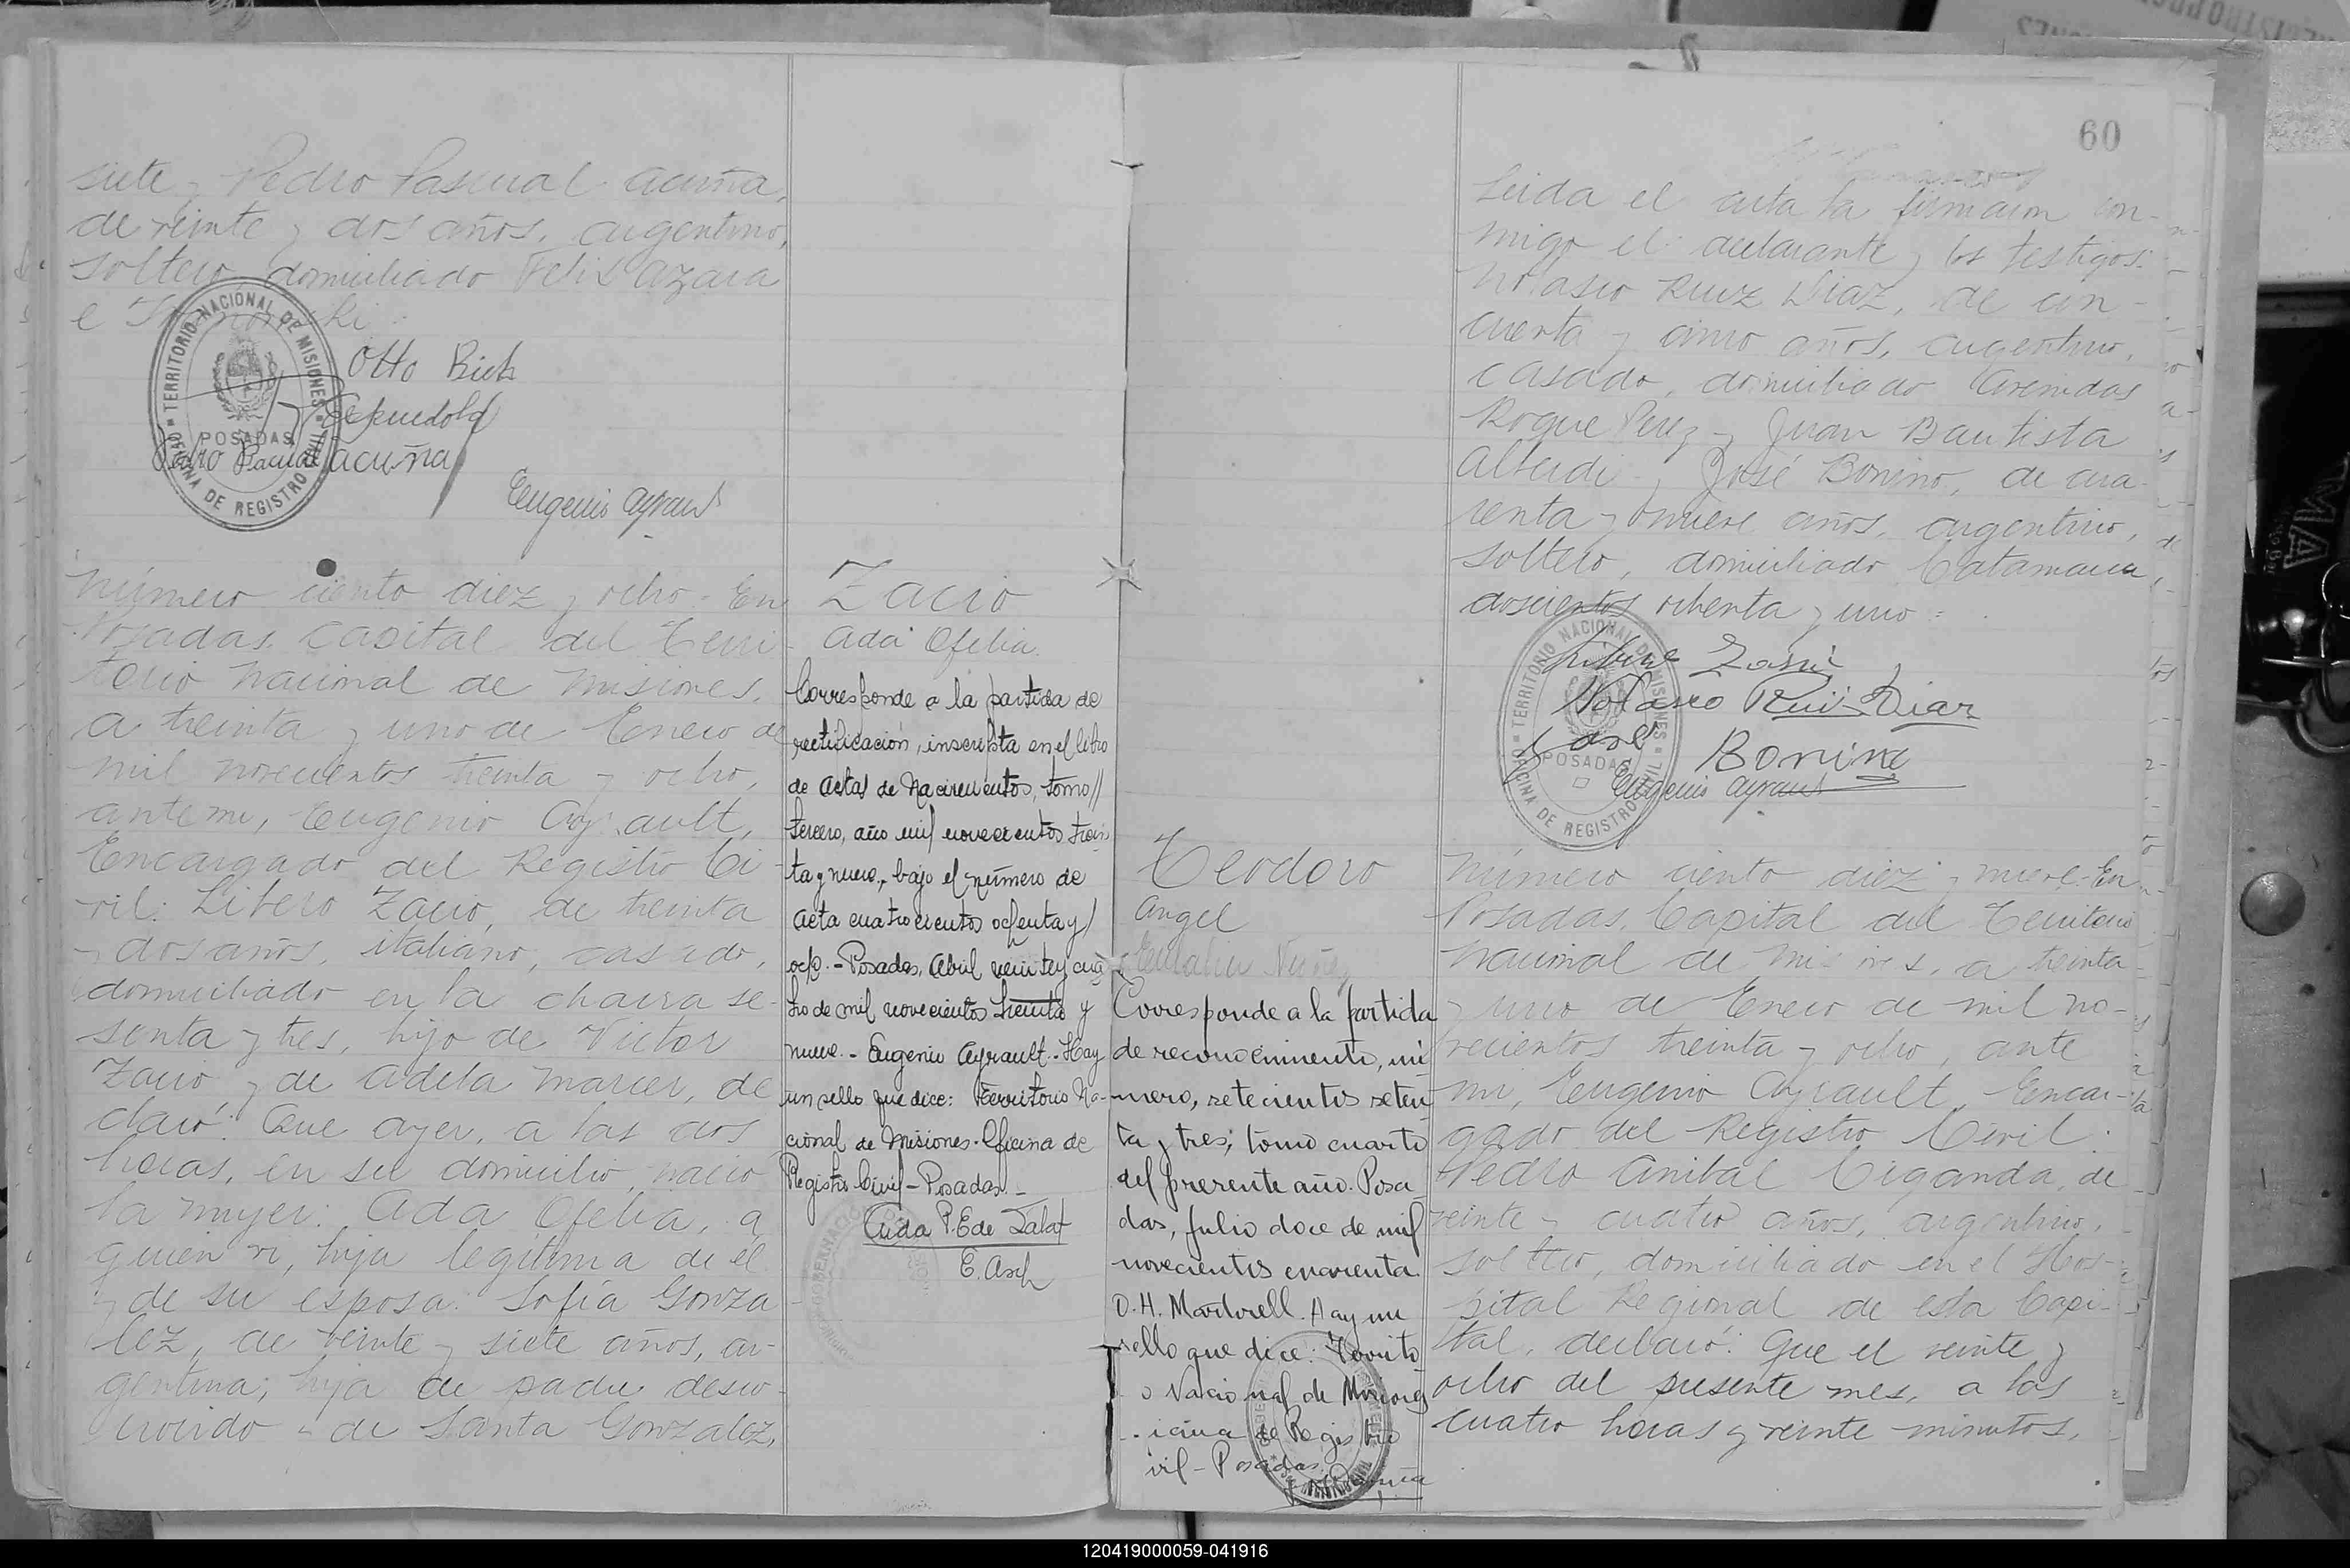 siete y Pedro Pascual Acuña,
de veinte y dos años, argentino,
soltero, domiciliado Felix Azara
e
TERRITORIO NACIONAL DE MISIONES
POSADAS
OFICINA DE REGISTRO CIVIL
Otto Bich
Pedro Pascual Acuña
Eugenio Ayrault
Número ciento diez y ocho: En
Posadas, Capital del Terri-
torio Nacional de Misiones,
a treinta y uno de Enero de
mil novecientos treinta y ocho,
ante mi, Eugenio Ayrault,
Encargado del Registro Ci-
vil: Libero Zacio, de treinta
y dos años, italiano, casado,
domiciliado en la chacra se-
senta y tres, hijo de Victor
Zacio y de Adela Marcer, de
claró: Que ayer, a las dos
horas, en su domicilio, nacio
la mujer: Ada Ofelia, a
quien vi, hija legitima de él
y de su esposa: Sofia Gonza
lez, de veinte y siete años, ar-
gentina; hija de padre desco-
nocido y de Santa Gonzalez,
Zacio
Ada Ofelia
Corresponde a la partida de
rectificación, inscripta en el libro
de actas de Nacimientos, tomo //
tercero, año mil novecientos trein
ta y nueve, bajo el número de
acta cuatrocientos ochenta y /
ocho. - Posadas, Abril veinte y cua
tro de mil novecientos treinta y
nueve. - Eugenio Ayrault. - Hay
un sello que dice: Territorio Na-
cional de Misiones. Oficina de
Registro Civil - Posadas. -
Aida P. E de Jalaf
E. Asch
60
Leida el acta la firmaron con-
migo el declarante y los testigos:
Nolasco Ruiz Diaz, de cin-
cuenta y cinco años, argentino,
casado, domiciliado Avenidas
Roque Perez y Juan Bautista
Alberdi y José Bonino, de cua-
renta y nueve años, argentino,
soltero, domiciliado Catamarca,
doscientos ochenta y uno =
TERRITORIO NACIONAL DE MISIONES
POSADAS
OFICINA DE REGISTRO CIVIL
Nolasco Ruiz Diaz
José Bonino
Eugenio Ayrault
Teodoro
Angel
Nuñez
Corresponde a la partida
de reconocimiento, nú
mero, setecientos seten
ta y tres; tomo cuarto
del presente año. Posa
das, Julio doce de mil
novecientos cuarenta.
O. H. Martorell. Hay un
sello que dice: Territo
o Nacional de Misiones
icina de Registro
vil - Posadas.
Número ciento diez y nueve: En
Posadas, Capital del Territorio
Nacional de Misiones, a treinta
y uno de Enero de mil no-
vecientos treinta y ocho, ante
mi, Eugenio Ayrault, Encar-
gado del Registro Civil:
Pedro Anibal Ciganda, de
veinte y cuatro años, argentino,
soltero, domiciliado en el Hos-
pital Regional de esta Capi-
tal, declaró: Que el veinte y
ocho del presente mes, a las
cuatro horas y veinte minutos,
120419000059-041916